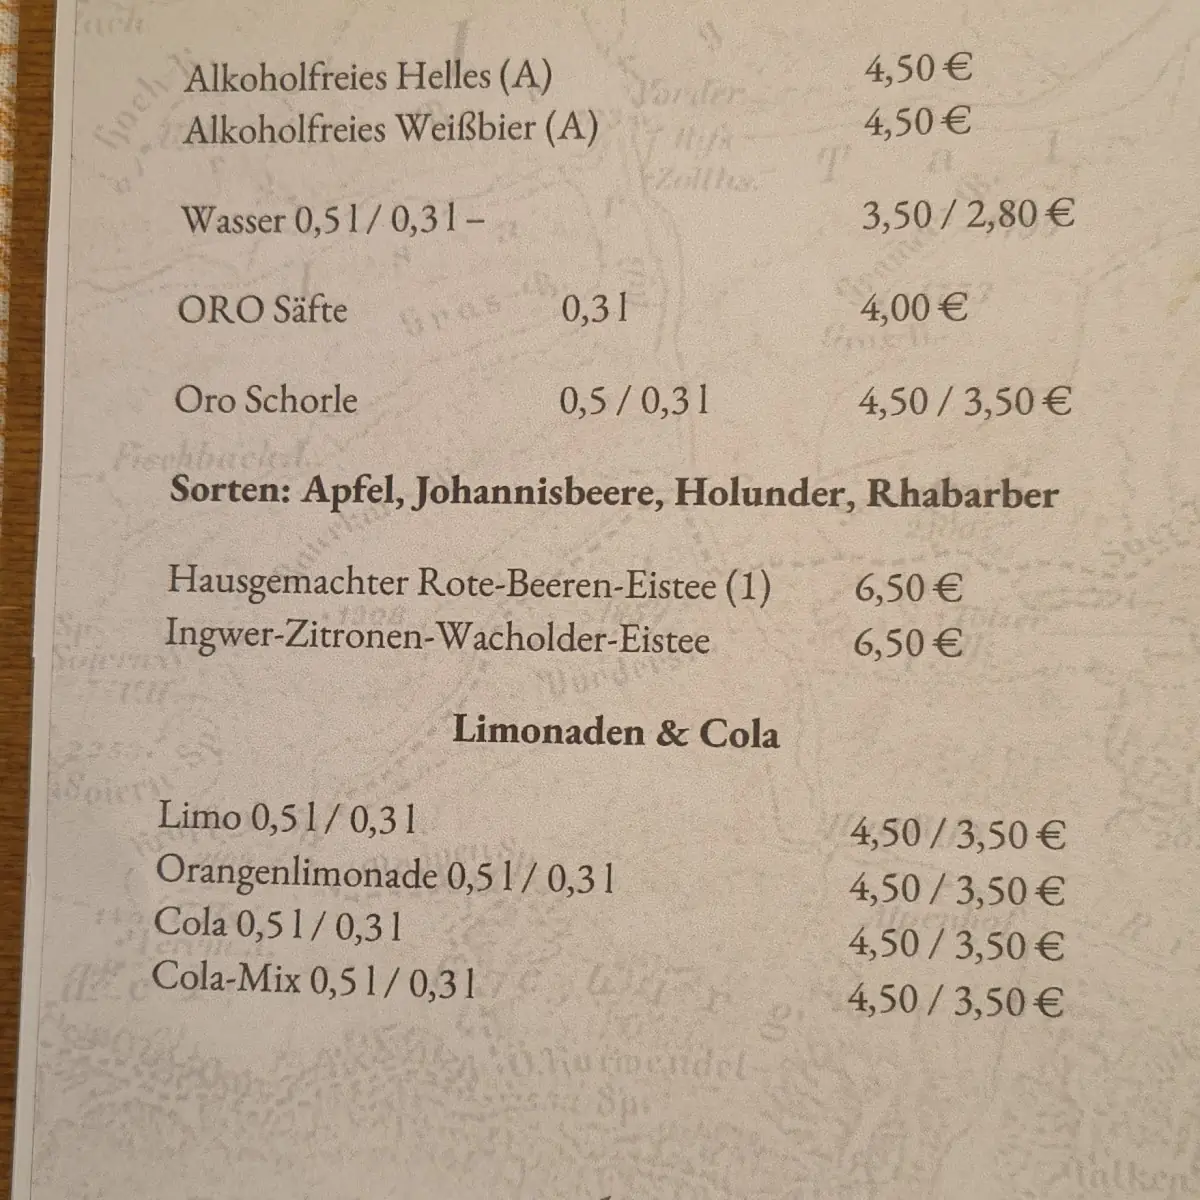 Alkoholfreies Helles (A) 4,50 €
Alkoholfreies Weißbier (A) 4,50 €
Wasser 0,5 l / 0,3 l – 3,50 / 2,80 €
ORO Säfte 0,3 l 4,00 €
Oro Schorle 0,5 / 0,3 l 4,50 / 3,50 €
Sorten: Apfel, Johannisbeere, Holunder, Rhabarber
Hausgemachter Rote-Beeren-Eistee (1) 6,50 €
Ingwer-Zitronen-Wacholder-Eistee 6,50 €
Limonaden & Cola
Limo 0,5 l / 0,3 l 4,50 / 3,50 €
Orangenlimonade 0,5 l / 0,3 l 4,50 / 3,50 €
Cola 0,5 l / 0,3 l 4,50 / 3,50 €
Cola-Mix 0,5 l / 0,3 l 4,50 / 3,50 €